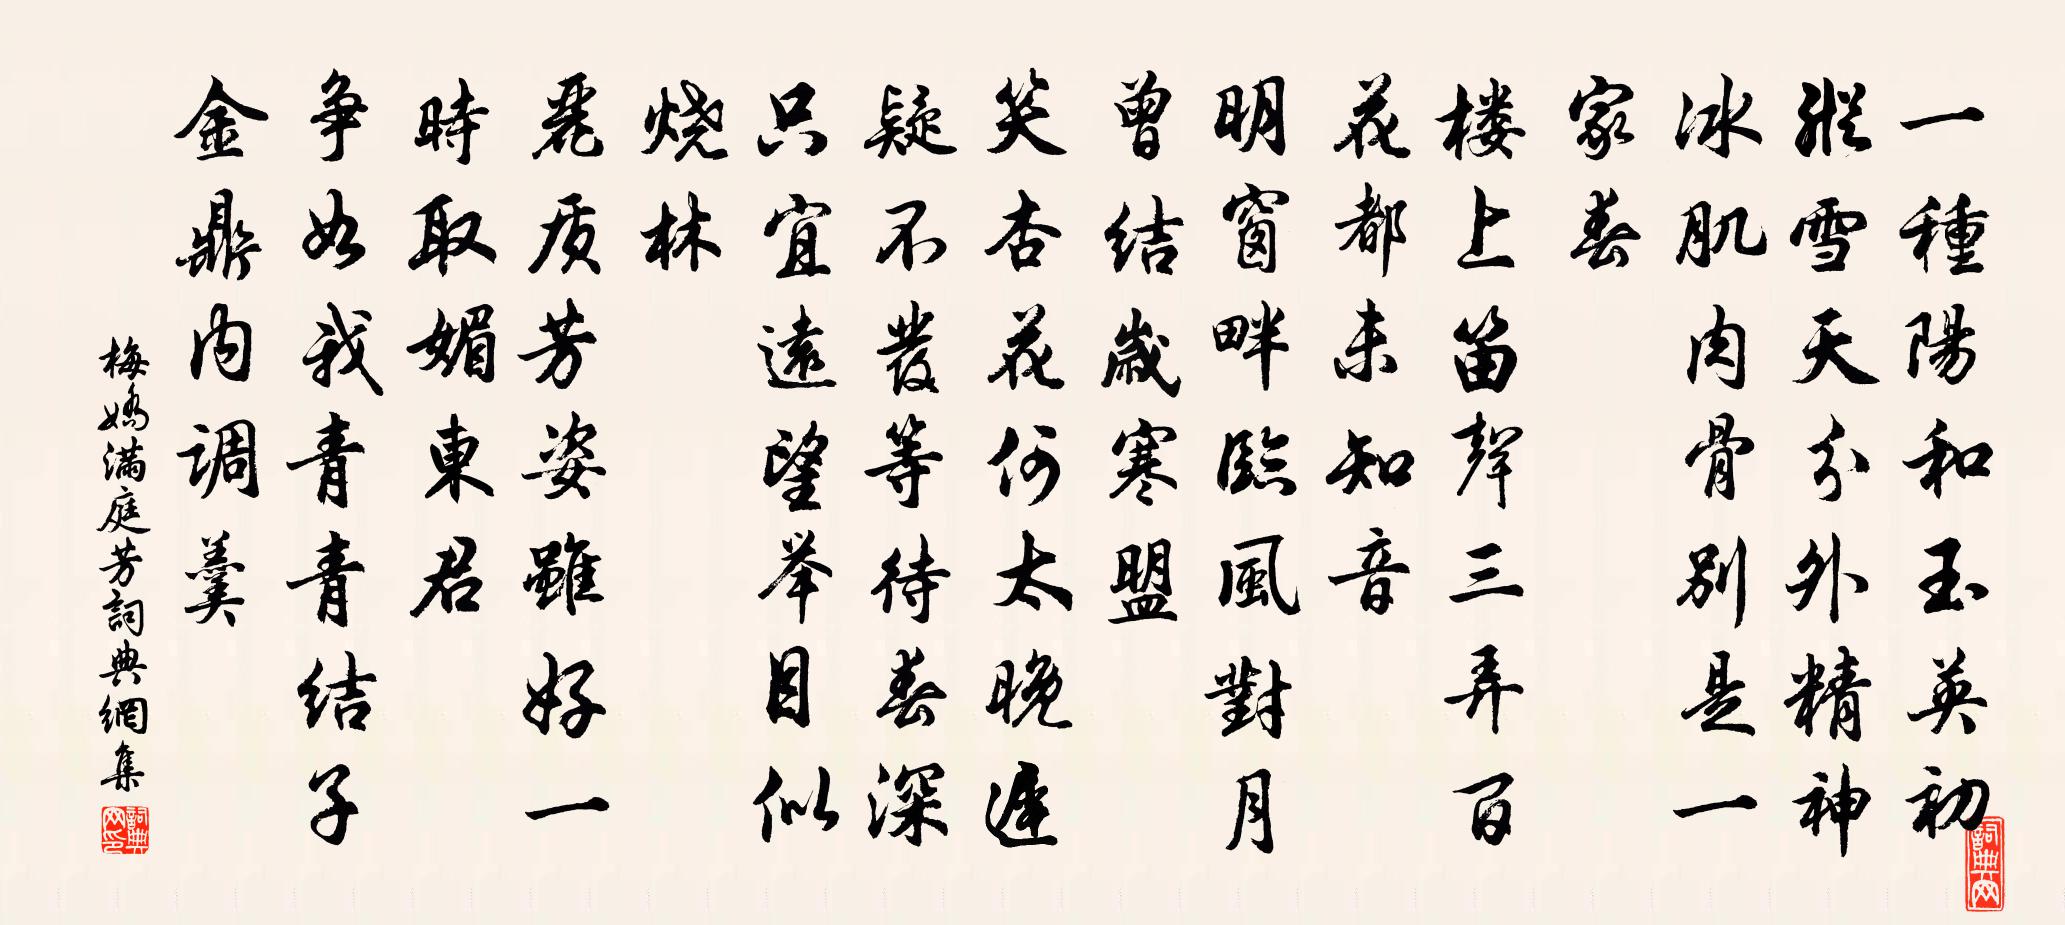 一種陽和玉英初
縱雪天分外精神
冰肌肉骨別是一
家春
楼上笛聲三弄百
花都未知音
明窗畔臨風對月
曾结歲寒盟
笑杏花何太晚遲
疑不發等待春深
只宜遠望举目似
烧林
麗质芳姿雖好一
時取媚東君
争如我青青结子
金鼎内调羹
梅嬌满庭芳詞典網集
詞典网印
詞典网